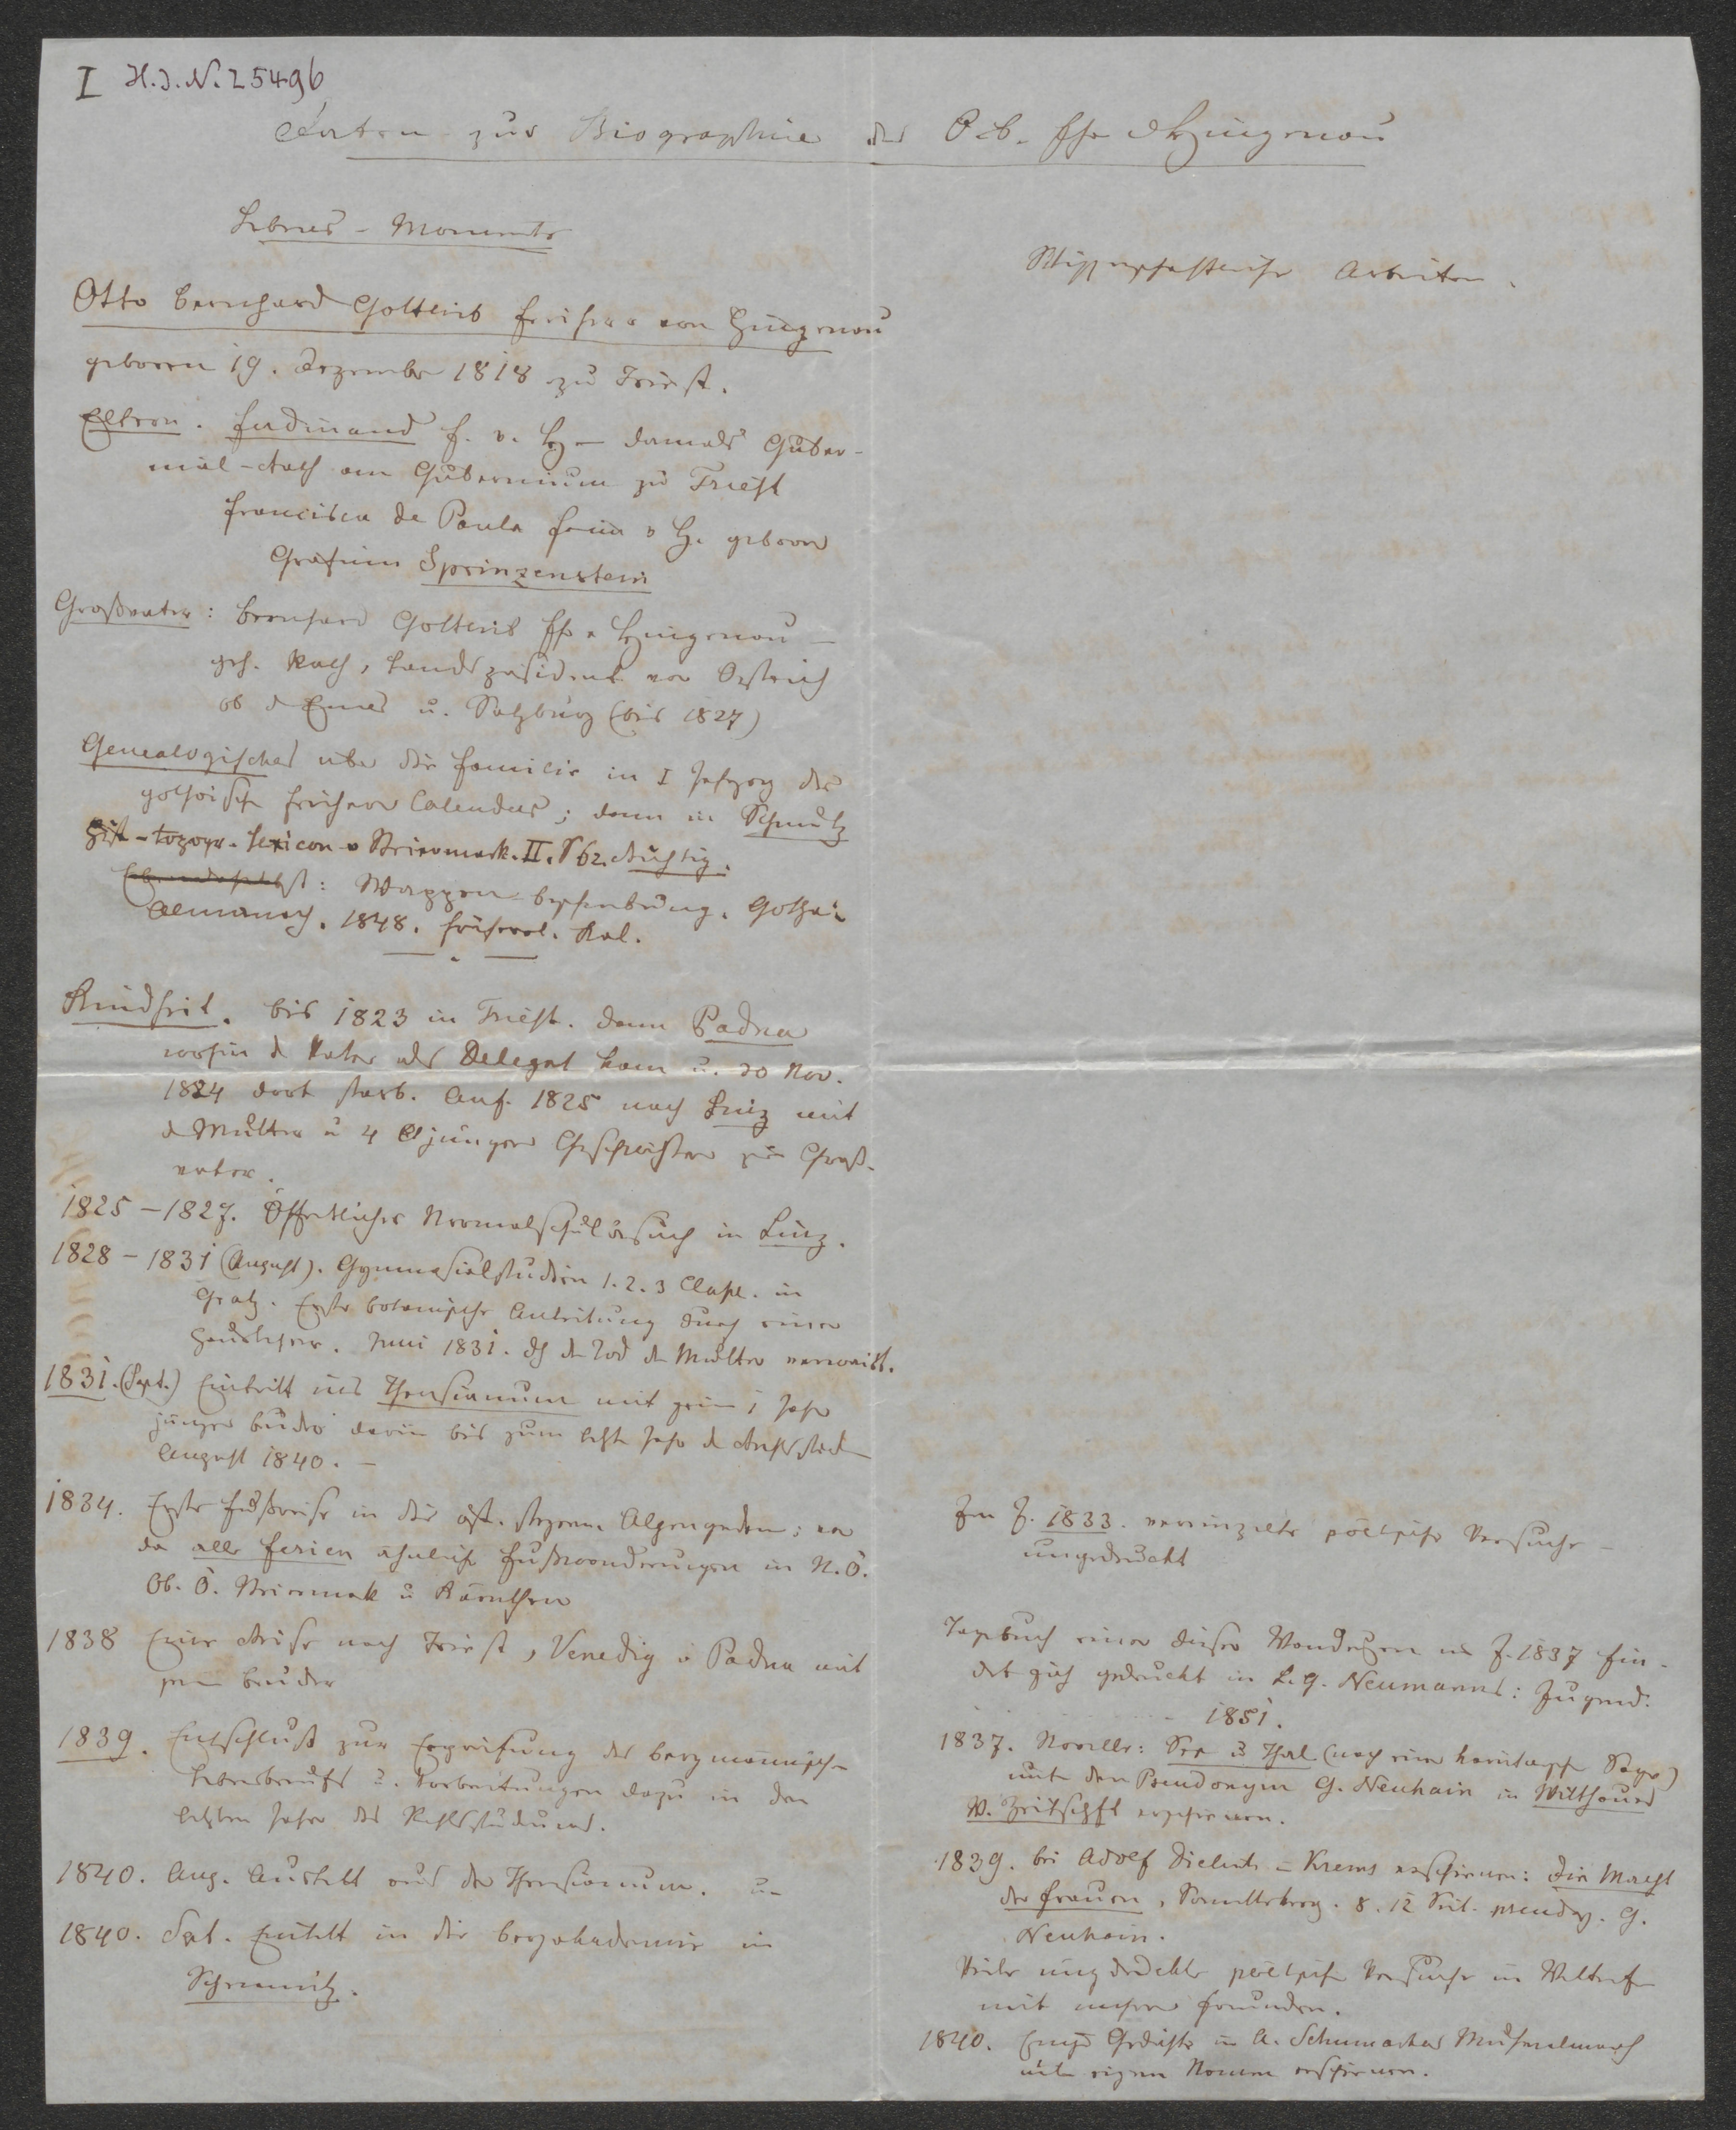 I H.I.N. 25496
Daten zur Biographie des O. B. Fhr v Hingenau
Lebens-Momente
Otto Bernhard Gottlieb Freiherr von Hingenau
geboren 19. Dezember 1818 zu Triest.
Eltern. Ferdinand F. v. H – damals Guber-
nial-Rath am Gubernium zu Triest
Francisca de Paula Freiin v H. geborene
Gräfinn Sprinzenstein
Großvater: Bernhard Gottlieb Fhr v Hingenau –
geh. Rath, Landespräsident von Oestreich
ob d Enns u. Salzburg (bis 1827)
Genealogisches über die Familie in I Jahrgang des
gothaisch freiherrl Calenders; dann in Schmutz
hist-topogr. Lexicon v Steiermark. II. S 62. Richtig.
Ebendaselbst: Wappen beschreibung. Gotha
Almanach. 1848. freiherrl. Kal.
Kindheit. bis 1823 in Triest. dann Padua
wohin d Vater als Delegat kam u. 20 Nov.
1824 dort starb. Anf. 1825 nach Linz mit
d Mutter u 4 jüngern Geschwistern zum Groß-
vater.
1825–1827. Öffentlicher Normalschulbesuch in Linz.
1828–1831 (August). Gymnasialstudien 1. 2. 3 Classe. in
Gratz. Erste botanische Anleitung durch einen
Hauslehrer. Juni 1831. dch den Tod der Mutter verwaist.
1831. (Sept.) Eintritt ins Theresianum mit seinem 1 Jahr
jüngern Bruder darin bis zum letzten Jahr d Rechtsstudien
August 1840. –
1834. Erste Fußreise in die öst. steyerm. Alpengegenden; von
da alle Ferien ähnliche Fußwanderungen in N.Ö.
Ob. Ö. Steiermark u Kärnthen
1838 Eine Reise nach Triest, Venedig u Padua mit
sein Bruder
1839. Entschluß zur Ergreifung des bergmännischen
Lebensberufs u. Vorbereitungen dazu in den
letzten Jahre des Rechtsstudiums.
1840. Aug. Austritt aus dem Theresianum. u–
1840. Sept. Eintritt in die Bergakademie in
Schemnitz.
Schriftstellerische Arbeiten.
Im J. 1833. vereinzelte poetische Versuche –
ungedruckt
Tagebuch einer dieser Wanderungen im J. 1837 fin-
det sich gedruckt in L. G. Neumanns: Jugend.
1851.
1837. Novelle: See u Thal (nach einer Sage)
unter dem Pseudonym G. Neuhain in Witthauers
W. Zeitschft erschienen.
1839. bei Adolf in Krems erschienen: Die Macht
der Frauen, 8. 12 Seit. pseudog. G.
Neuhain.
Viele ungedruckte poetische Versuche in
mit mehren Freunden.
1840. Einige Gedichte in A. Schumachers Musenalmanach
unter eigenem Namen erschienen.